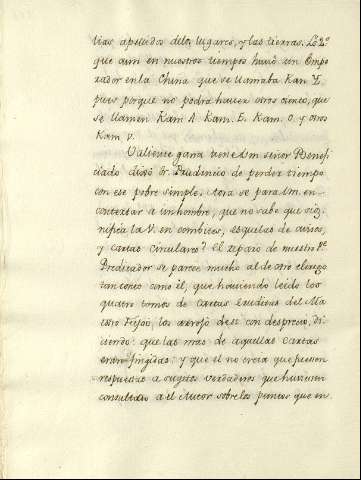 lias apellidos de los lugares, y las tierras. Lo 2º
que aun en nuestros tiempos huvo un Empe
rador en la China que se llamaba Kam Y.
pues porque no podrá haver otros ciento, que
se llamen Kam A. Kam. E. Kam. O. y otros
Kam V.
Valiente gana tiene Vm señor Benefi
ciado dixo Dr. Prudencio de perder tiempo
con ese pobre simple. Aora se para Vm. en
contextar a un hombre, que no sabe que sig
nifica la V. en combites, esquelas de avisos,
y cartas circulares? El reparo de nuestro Pe
Predicador se parece mucho al de otro clerigo
tan tonto como èl, que haviendo leido los
quatro tomos de cartas eruditas del Ma
estro Feijoò, los arrojò de si con desprecio, di
ciendo: que las mas de aquellas cartas
eran fingidas: y que èl no creìa que fuesen
respuestas a sugetos verdaderos que huviesen
consultado a el Autor sobre los puntos que en